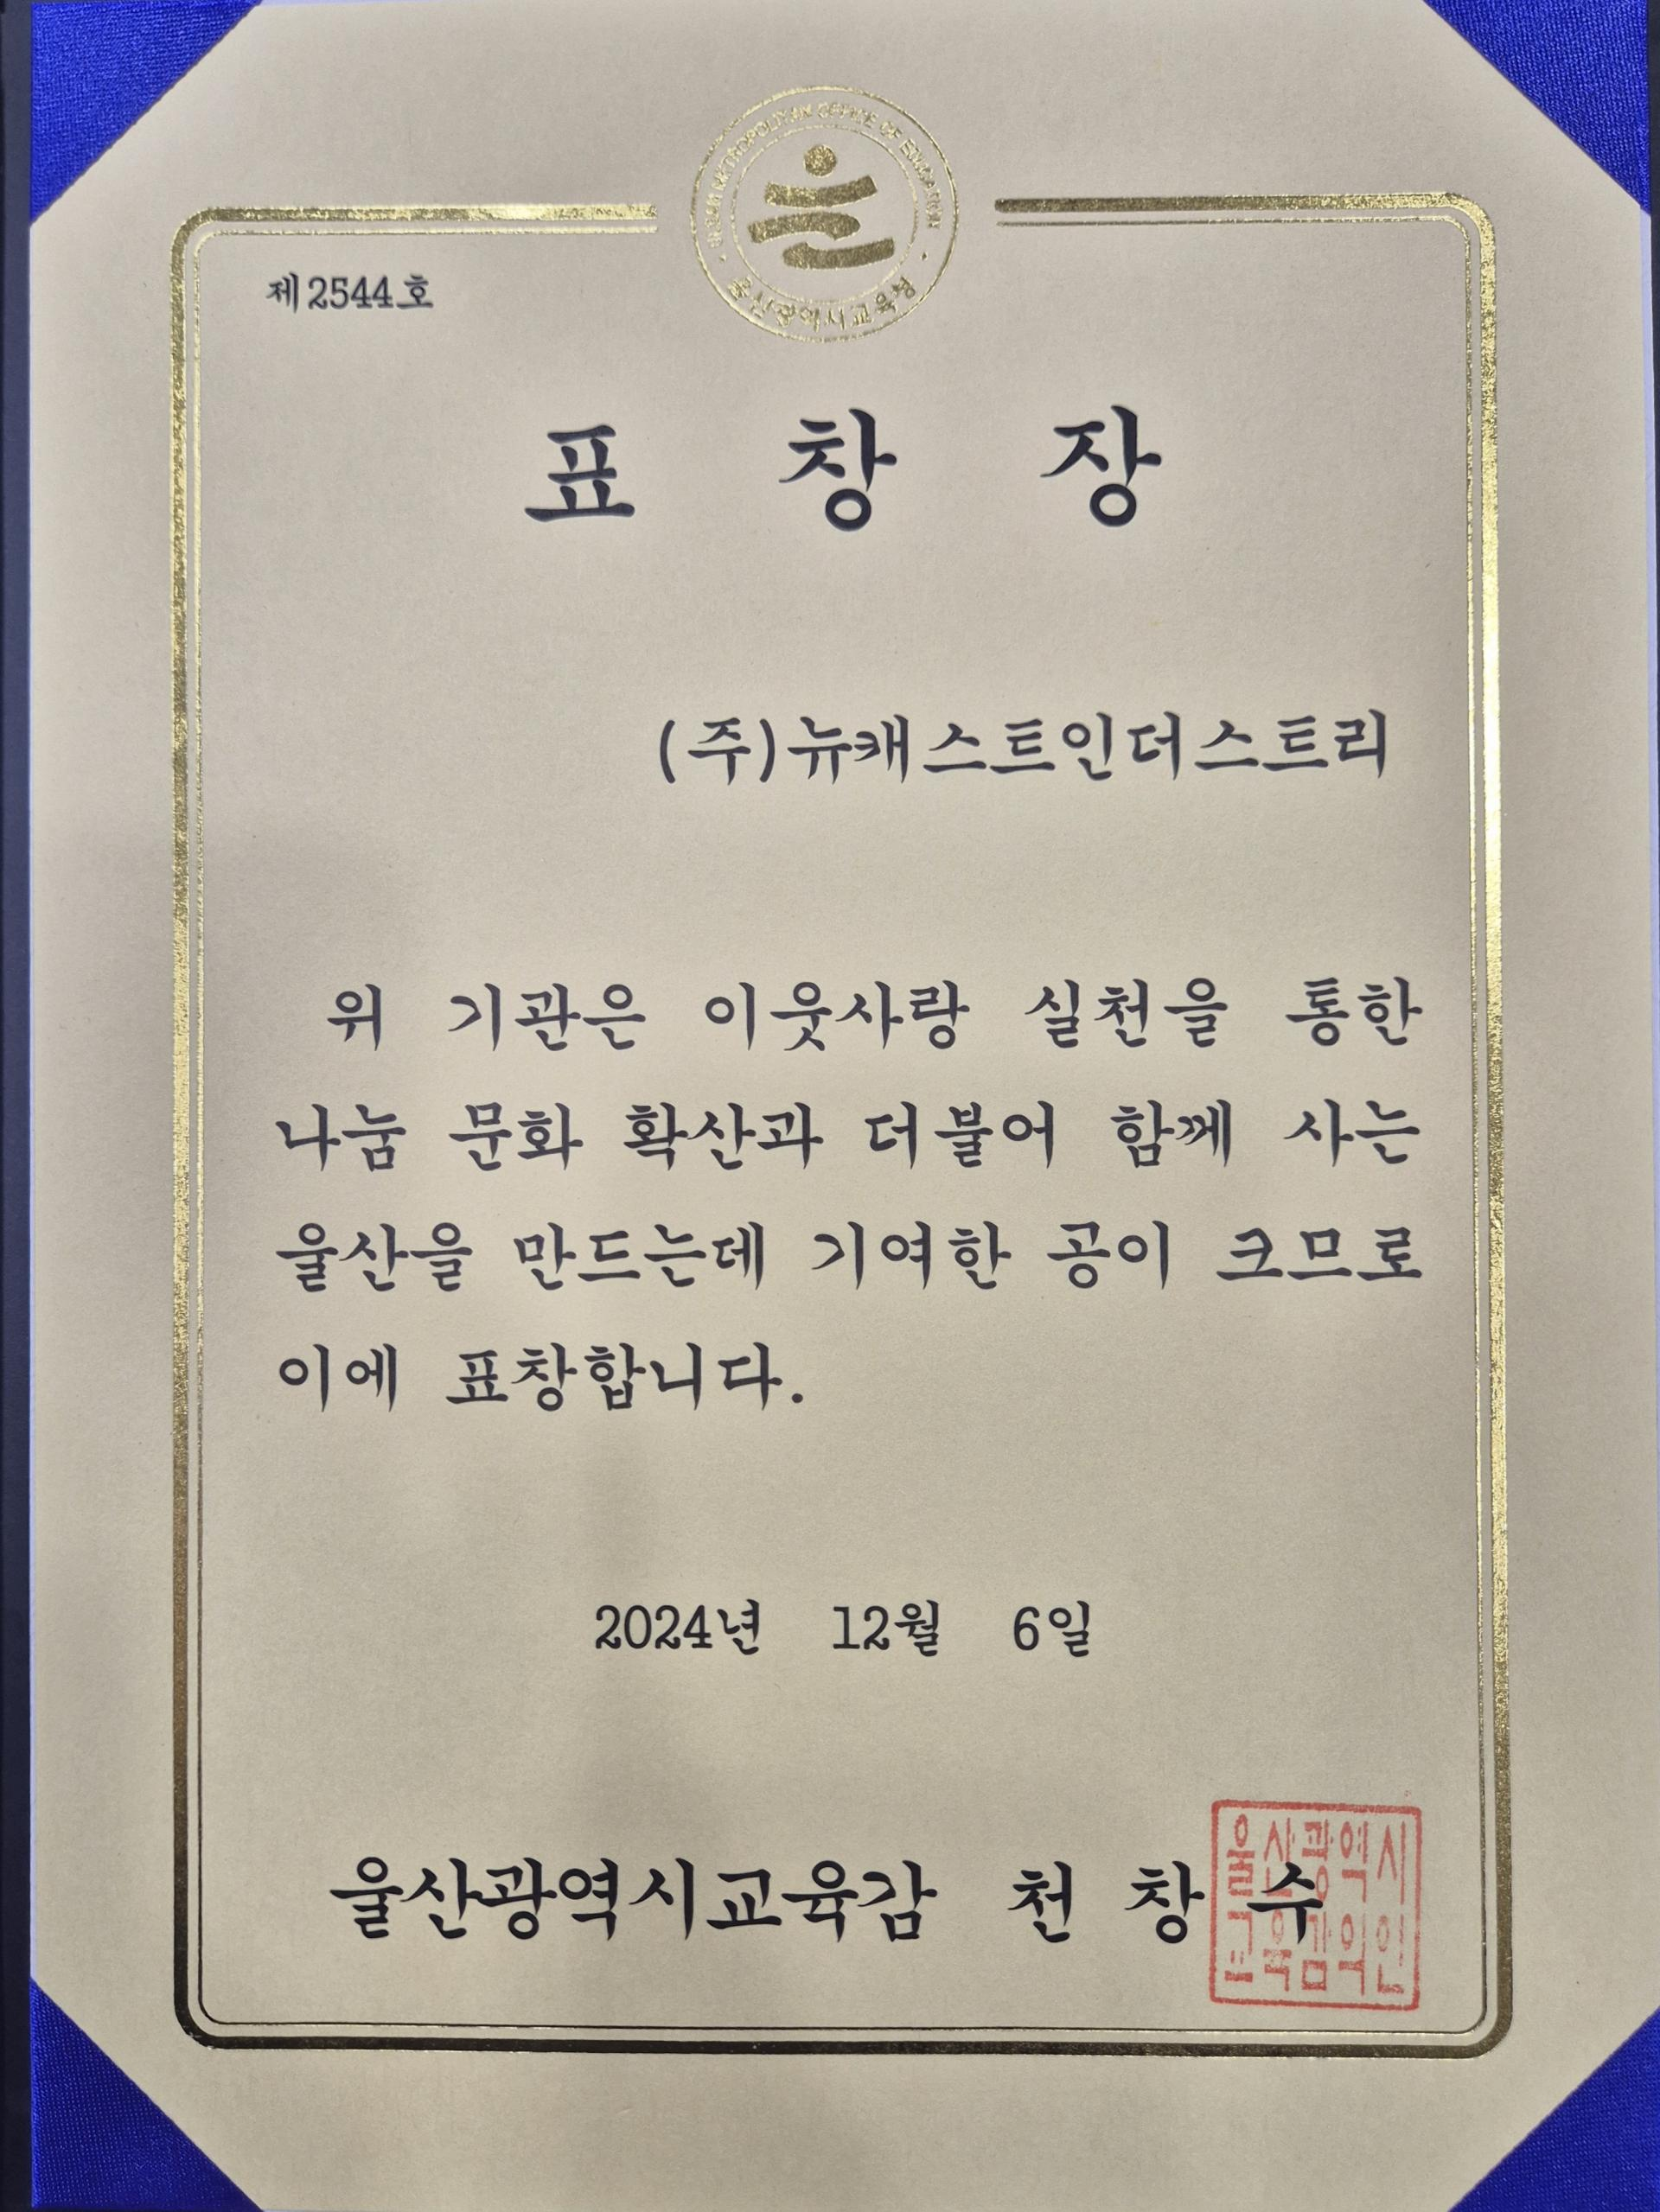 ULSAN METROPOLITAN OFFICE OF EDUCATION
울산광역시교육청
제2544호
표 창 장
(주)뉴캐스트인더스트리
위 기관은 이웃사랑 실천을 통한
나눔 문화 확산과 더불어 함께 사는
울산을 만드는데 기여한 공이 크므로
이에 표창합니다.
2024년 12월 6일
울산광역시교육감 천 창 수
울산광역시
교육감의인